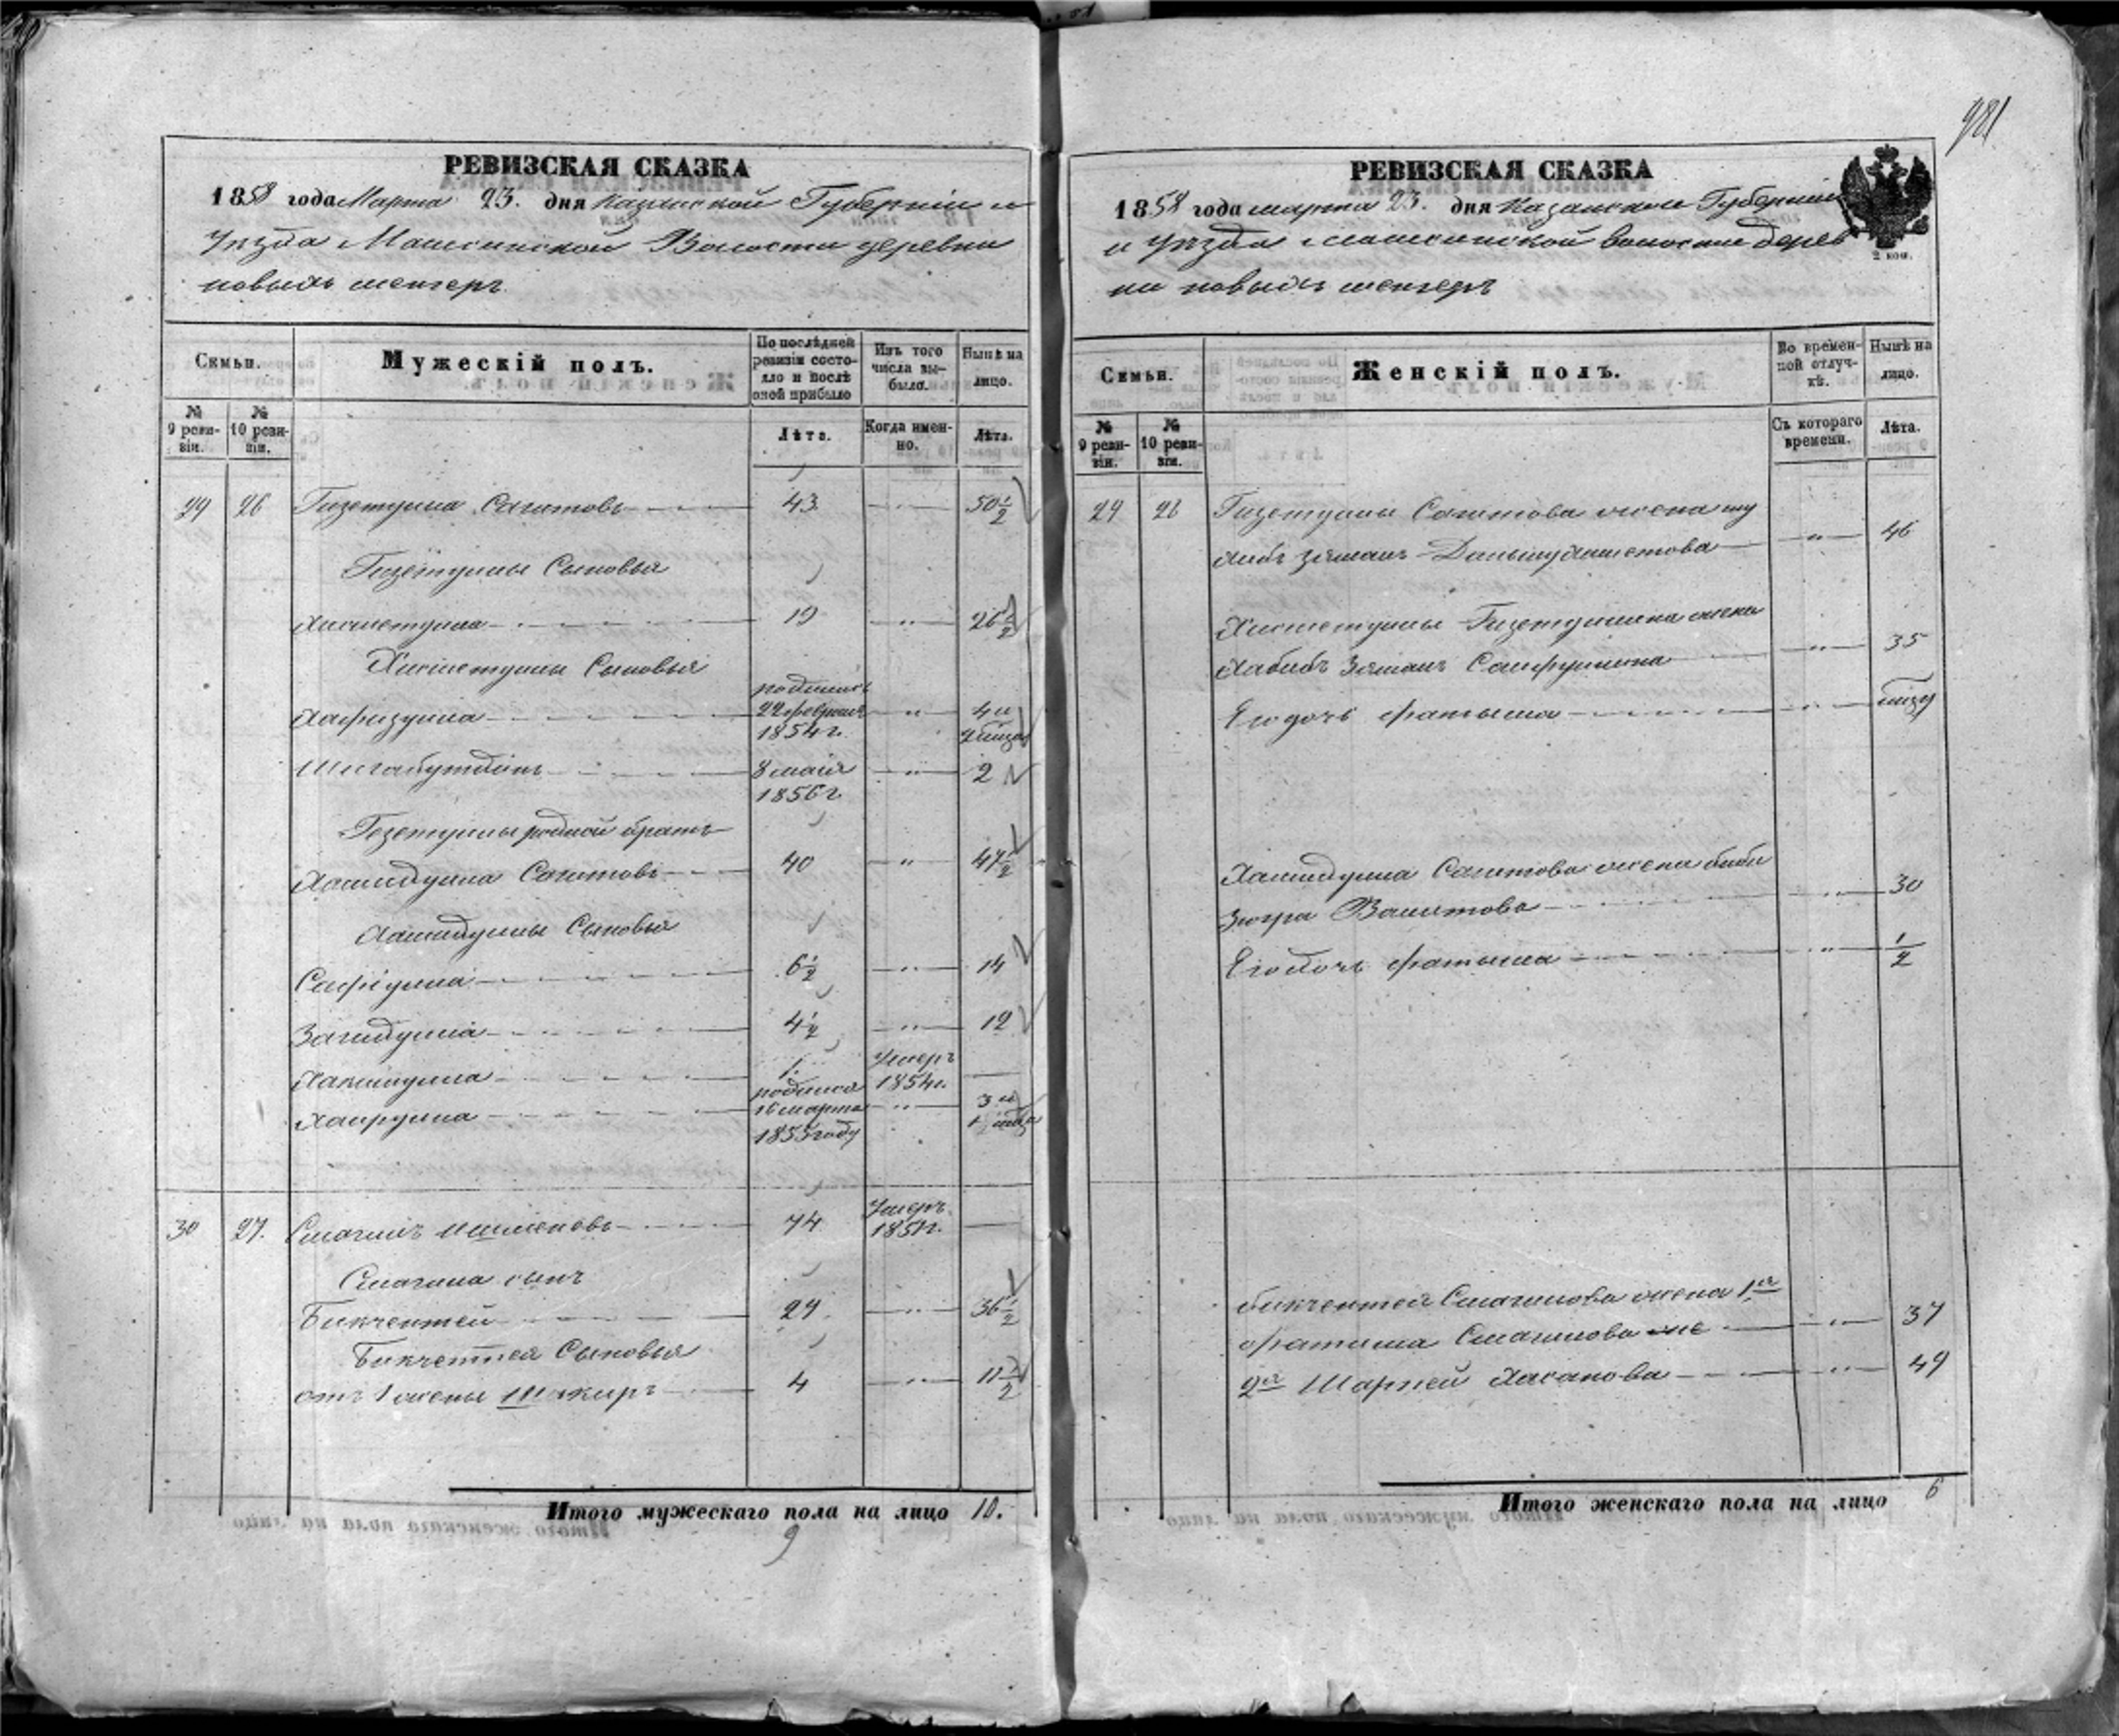 981
РЕВИЗСКАЯ СКАЗКА
1858 года Марта 23. дня Казанской Губернии и
Уезда Машсинской Волости деревни
новыхъ менгеръ
Семьи.
Мужескій полъ.
По послѣдней ревизіи состояло и послѣ оной прибыло
Изъ того числа выбыло.
Нынѣ на лицо.
№ 9 ревизіи.
№ 10 ревизіи.
Лѣта.
Когда именно.
Лѣта.
29 26 Гизетулла Сагитовъ 43 " 50 1/2
Гизетуллы Сыновья
Хисметулла 19 " 26 1/2
Хисметуллы Сыновья
Хафизулла родился 22 февраля 1854 г. " 4 и
Шигабутдинъ 8 маія 1856 г. " 2
Гизетуллы родной братъ
Хамидулла Сагитовъ 40 " 47 1/2
Хамидуллы Сыновья
Сафіулла 6 1/2 " 14
Загидулла 4 1/2 " 12
Хакимулла 1. Умеръ 1854 г.
Хаирулла родился 16 марта 1855 году " 3 и
30 27. Смагилъ Ишменевъ 74 Умеръ 1851 г.
Смагила сынъ
Бикчентей 29 " 36 1/2
Бикчентея Сыновья
отъ 1 жены Шакиръ 4 " 11 1/2
Итого мужескаго пола на лицо 10.
9
РЕВИЗСКАЯ СКАЗКА
1858 года марта 23. дня Казанской Губернии
и Уезда Машсинской волости дерев
ни новыхъ менгеръ
2 коп.
Семьи.
Женскій полъ.
Во временной отлучкѣ.
Нынѣ на лицо.
№ 9 ревизіи.
№ 10 ревизіи.
Съ котораго времени.
Лѣта.
29 26 Гизетуллы Сагитова жена
земанъ " 46
Хисметуллы Гизетуллина жена
Хабибъ Земанъ Сайфуллина " 35
Его дочь фатыма "
Хамидулла Сагитова жена биби
Зюгра Валитова " 30
Его дочь фатыма " 1/2
бикчентея Смагилова жена 1я
фатима Смагилова " 37
2я Шарней Хасанова " 49
Итого женскаго пола на лицо 6